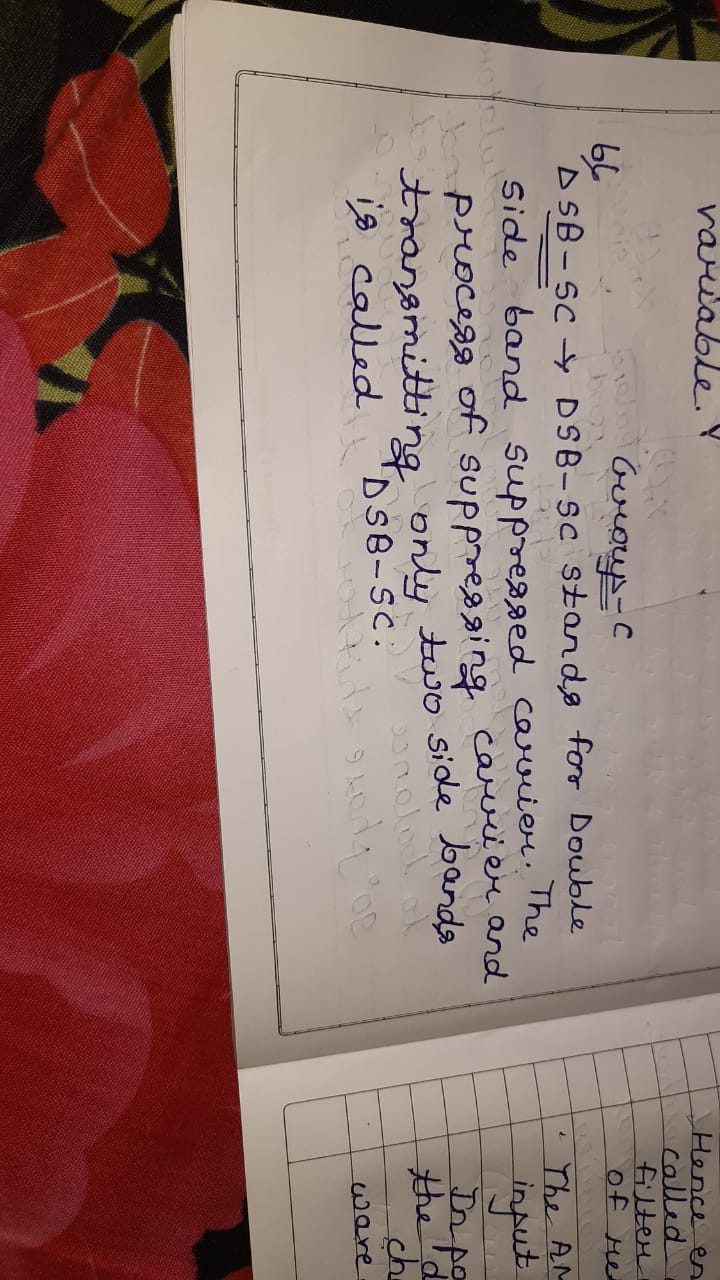 variable.
Group-C
b)
DSB-SC → DSB-SC stands for Double
side band suppressed carrier. The
process of suppressing carrier and
transmitting only two side bands
is called DSB-SC.
Hence en
called
filter
of re
. The AM
input
In po
the d
ch
ware